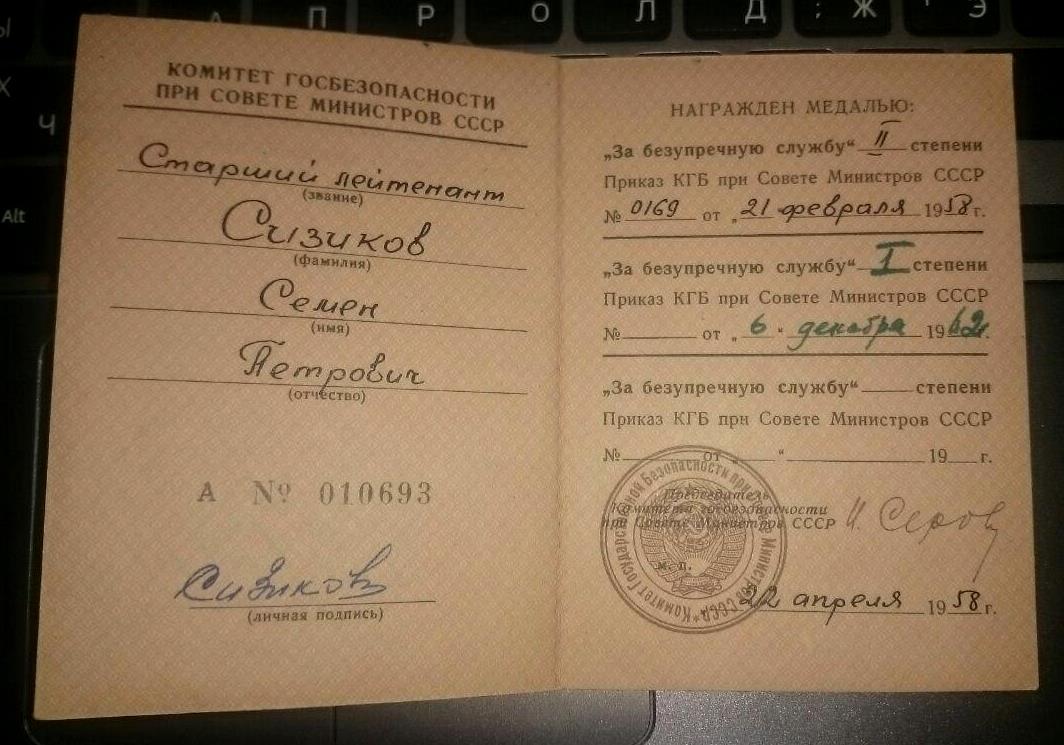 КОМИТЕТ ГОСБЕЗОПАСНОСТИ
ПРИ СОВЕТЕ МИНИСТРОВ СССР
Старший лейтенант
(звание)
Сизиков
(фамилия)
Семен
(имя)
Петрович
(отчество)
А № 010693
Сизиков
(личная подпись)
НАГРАЖДЕН МЕДАЛЬЮ:
„За безупречную службу“ II степени
Приказ КГБ при Совете Министров СССР
№ 0169 от „21 февраля 1958 г.
„За безупречную службу“ I степени
Приказ КГБ при Совете Министров СССР
№ от „6“ декабря 1962 г.
„За безупречную службу“ степени
Приказ КГБ при Совете Министров СССР
№ от „ “ 19 г.
Председатель
Комитета госбезопасности
при Совете Министров СССР И. Серов
м. п.
22 апреля 1958 г.
Комитет Государственной Безопасности при Совете Министров СССР
Ы А П Р О Л Д ; Ж Э
Х Ч
Alt